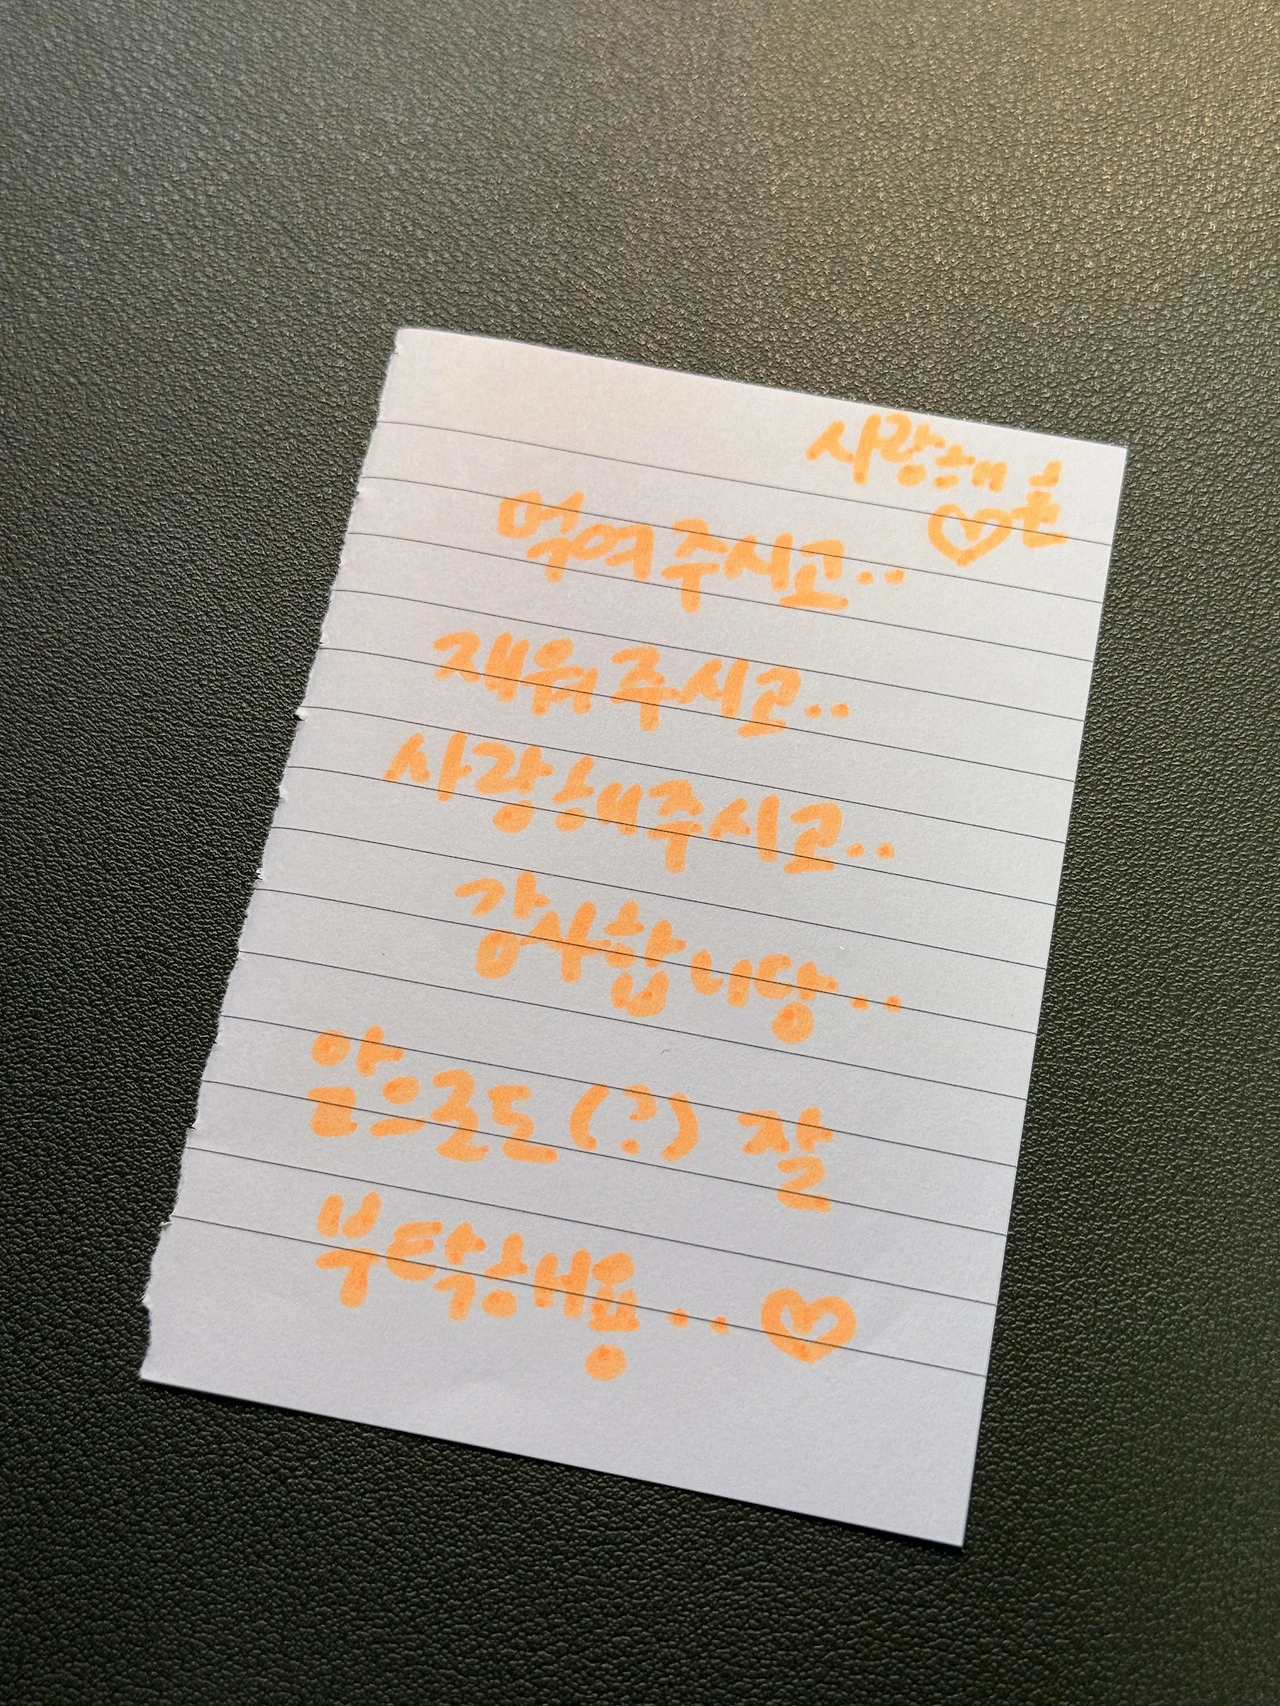 사랑해 훈
♡
먹여주시고..
재워주시고..
사랑해주시고..
감사합니당..
앞으로도(?) 잘
부탁해용.. ♡